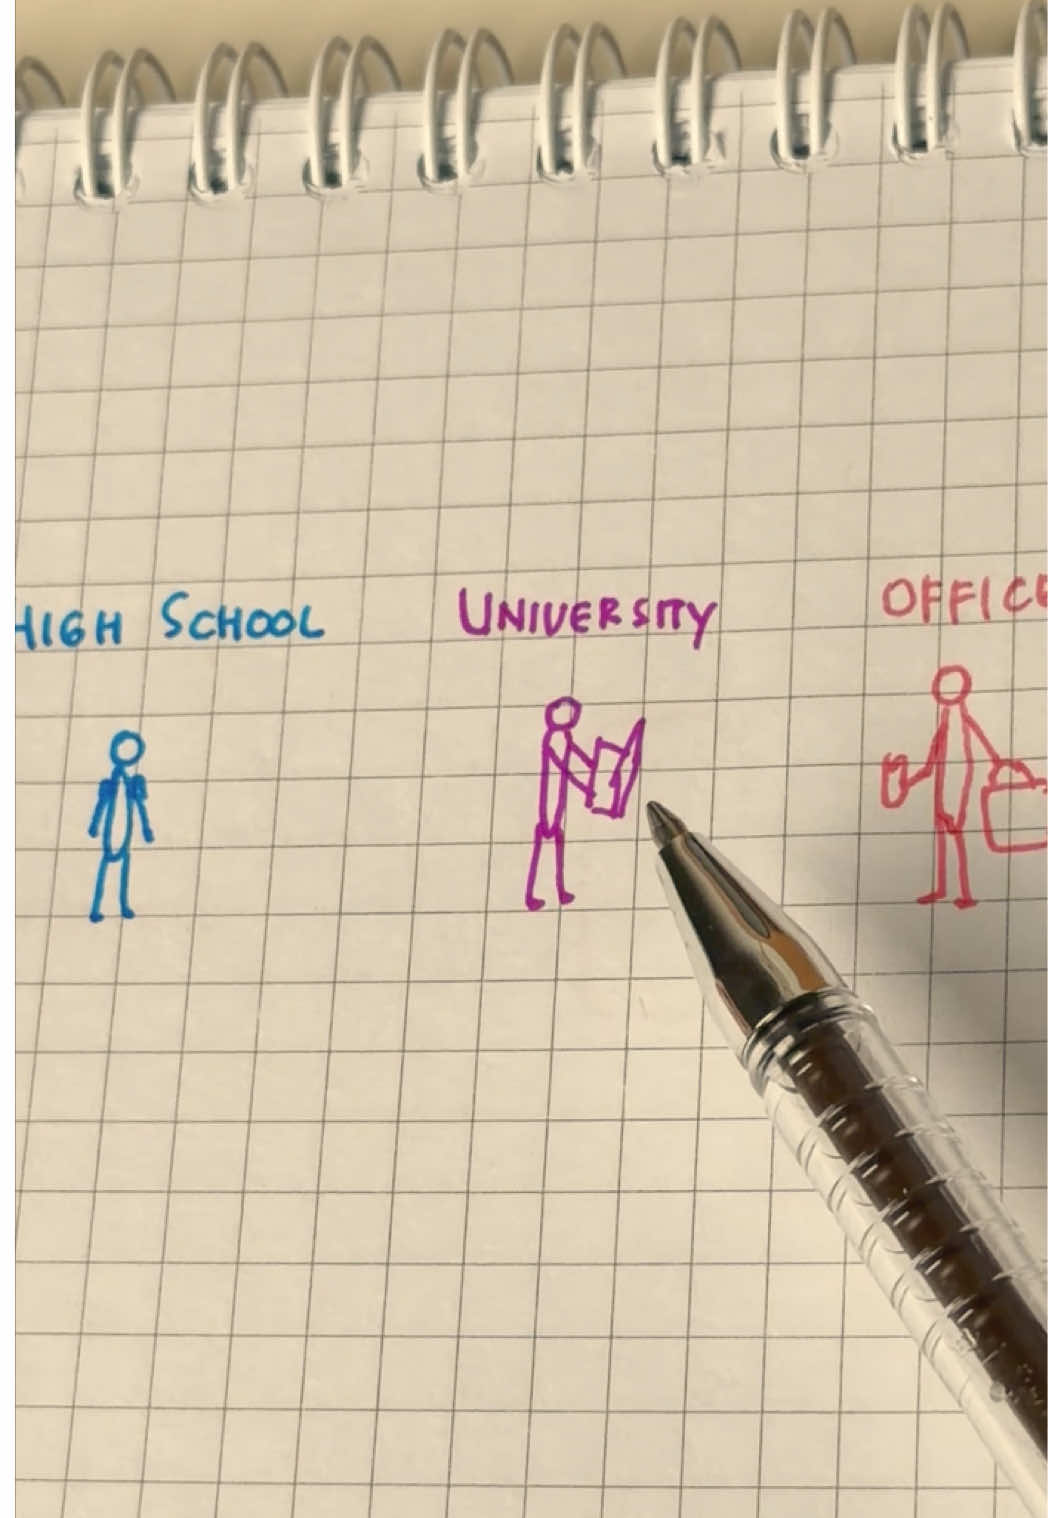 HIGH SCHOOL UNIVERSITY OFFICE